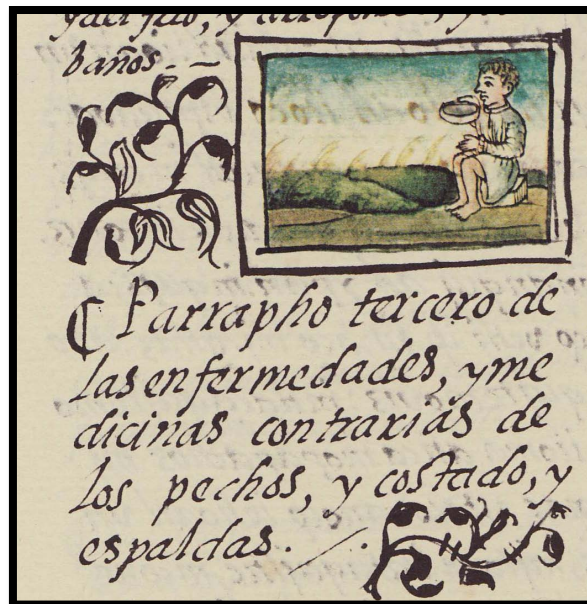 baños. —
¶ Parrapho tercero de
las enfermedades, y me
dicinas contrarias de
los pechos, y costado, y
espaldas.